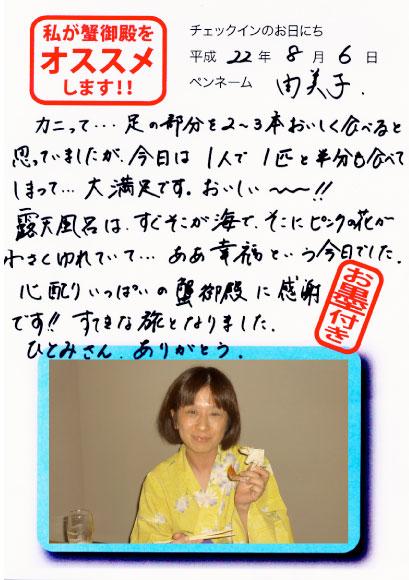 私が蟹御殿を
オススメ
します!!
チェックインのお日にち
平成 22 年 8 月 6 日
ペンネーム 由美子.
カニって… 足の部分を2〜3本おいしく食べると
思っていましたが、今日は 1人で 1匹と半分も食べて
しまって… 大満足です。おいしい〜〜!!
露天風呂は、すぐそこが海で、そこにピンクの花が
小さくゆれていて… ああ幸福という今日でした.
心配りいっぱいの蟹御殿に感謝
です!! すてきな旅となりました.
ひとみさん、ありがとう.
お墨付き